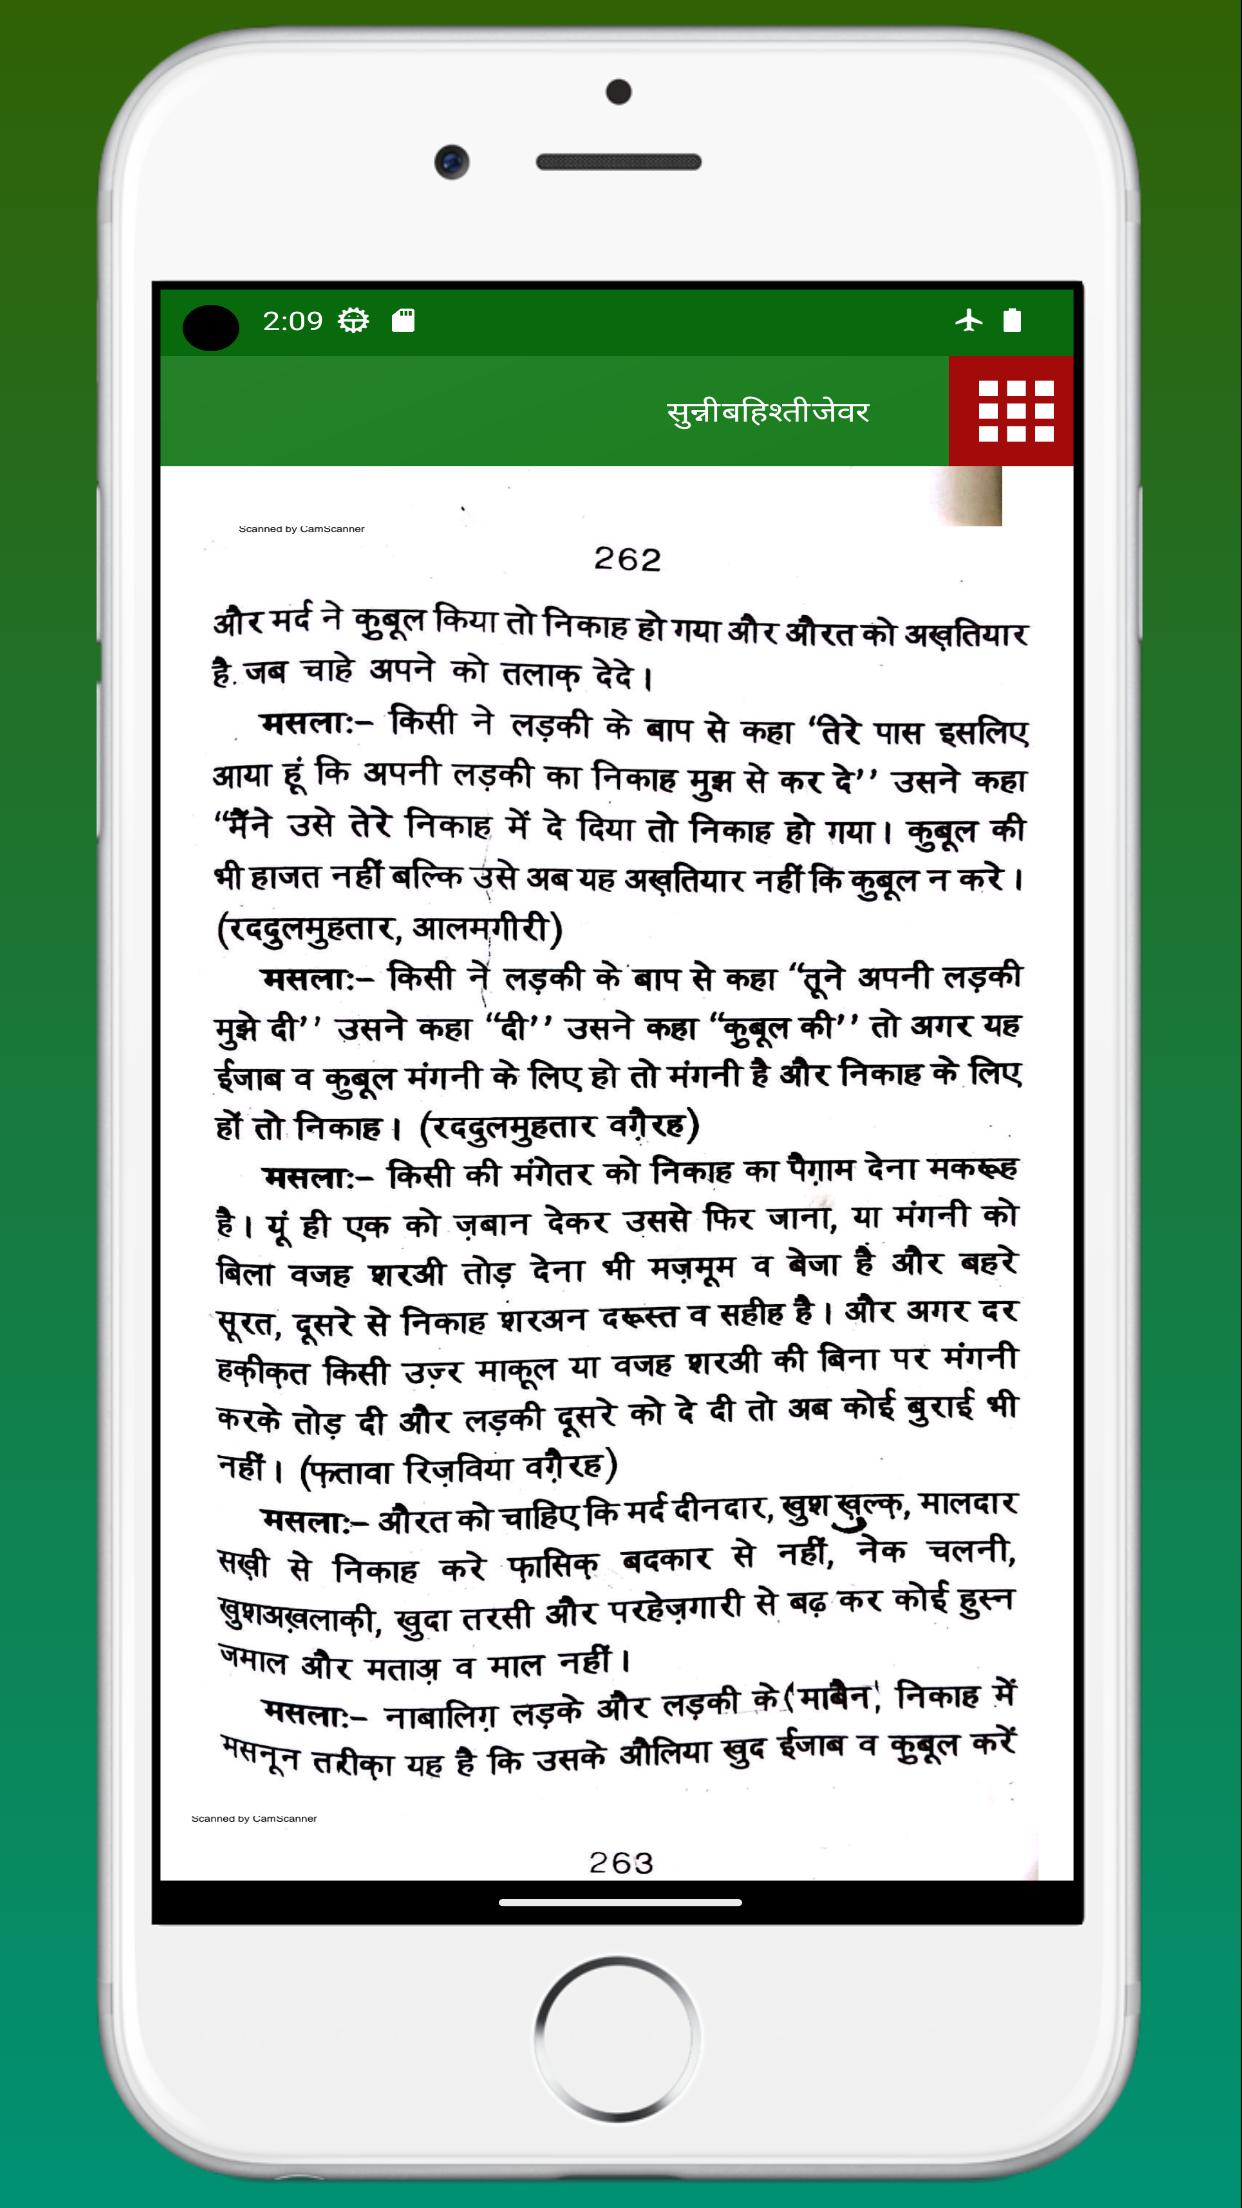 2:09
सुन्नीबहिश्तीजेवर
Scanned by CamScanner
262
और मर्द ने कुबूल किया तो निकाह हो गया और औरत को अख़तियार
है. जब चाहे अपने को तलाक़ देदे।
मसलाः– किसी ने लड़की के बाप से कहा ‘तेरे पास इसलिए
आया हूं कि अपनी लड़की का निकाह मुझ से कर दे’’ उसने कहा
“मैंने उसे तेरे निकाह में दे दिया तो निकाह हो गया। कुबूल की
भी हाजत नहीं बल्कि उसे अब यह अख़तियार नहीं कि कुबूल न करे।
(रददुलमुहतार, आलमगीरी)
मसलाः– किसी ने लड़की के बाप से कहा “तूने अपनी लड़की
मुझे दी’’ उसने कहा “दी’’ उसने कहा “कुबूल की’’ तो अगर यह
ईजाब व कुबूल मंगनी के लिए हो तो मंगनी है और निकाह के लिए
हों तो निकाह। (रददुलमुहतार वग़ैरह)
मसलाः– किसी की मंगेतर को निकाह का पैग़ाम देना मकरूह
है। यूं ही एक को ज़बान देकर उससे फिर जाना, या मंगनी को
बिला वजह शरअी तोड़ देना भी मज़मूम व बेजा है और बहरे
सूरत, दूसरे से निकाह शरअन दरूस्त व सहीह है। और अगर दर
हक़ीक़त किसी उज़्र माकूल या वजह शरअी की बिना पर मंगनी
करके तोड़ दी और लड़की दूसरे को दे दी तो अब कोई बुराई भी
नहीं। (फ़तावा रिज़विया वग़ैरह)
मसलाः– औरत को चाहिए कि मर्द दीनदार, खुश खुल्क़, मालदार
सख़ी से निकाह करे फ़ासिक़ बदकार से नहीं, नेक चलनी,
खुशअख़लाक़ी, खुदा तरसी और परहेज़गारी से बढ़ कर कोई हुस्न
जमाल और मताअ़ व माल नहीं।
मसलाः– नाबालिग़ लड़के और लड़की के (माबैन) निकाह में
मसनून तरीक़ा यह है कि उसके औलिया खुद ईजाब व कुबूल करें
Scanned by CamScanner
263